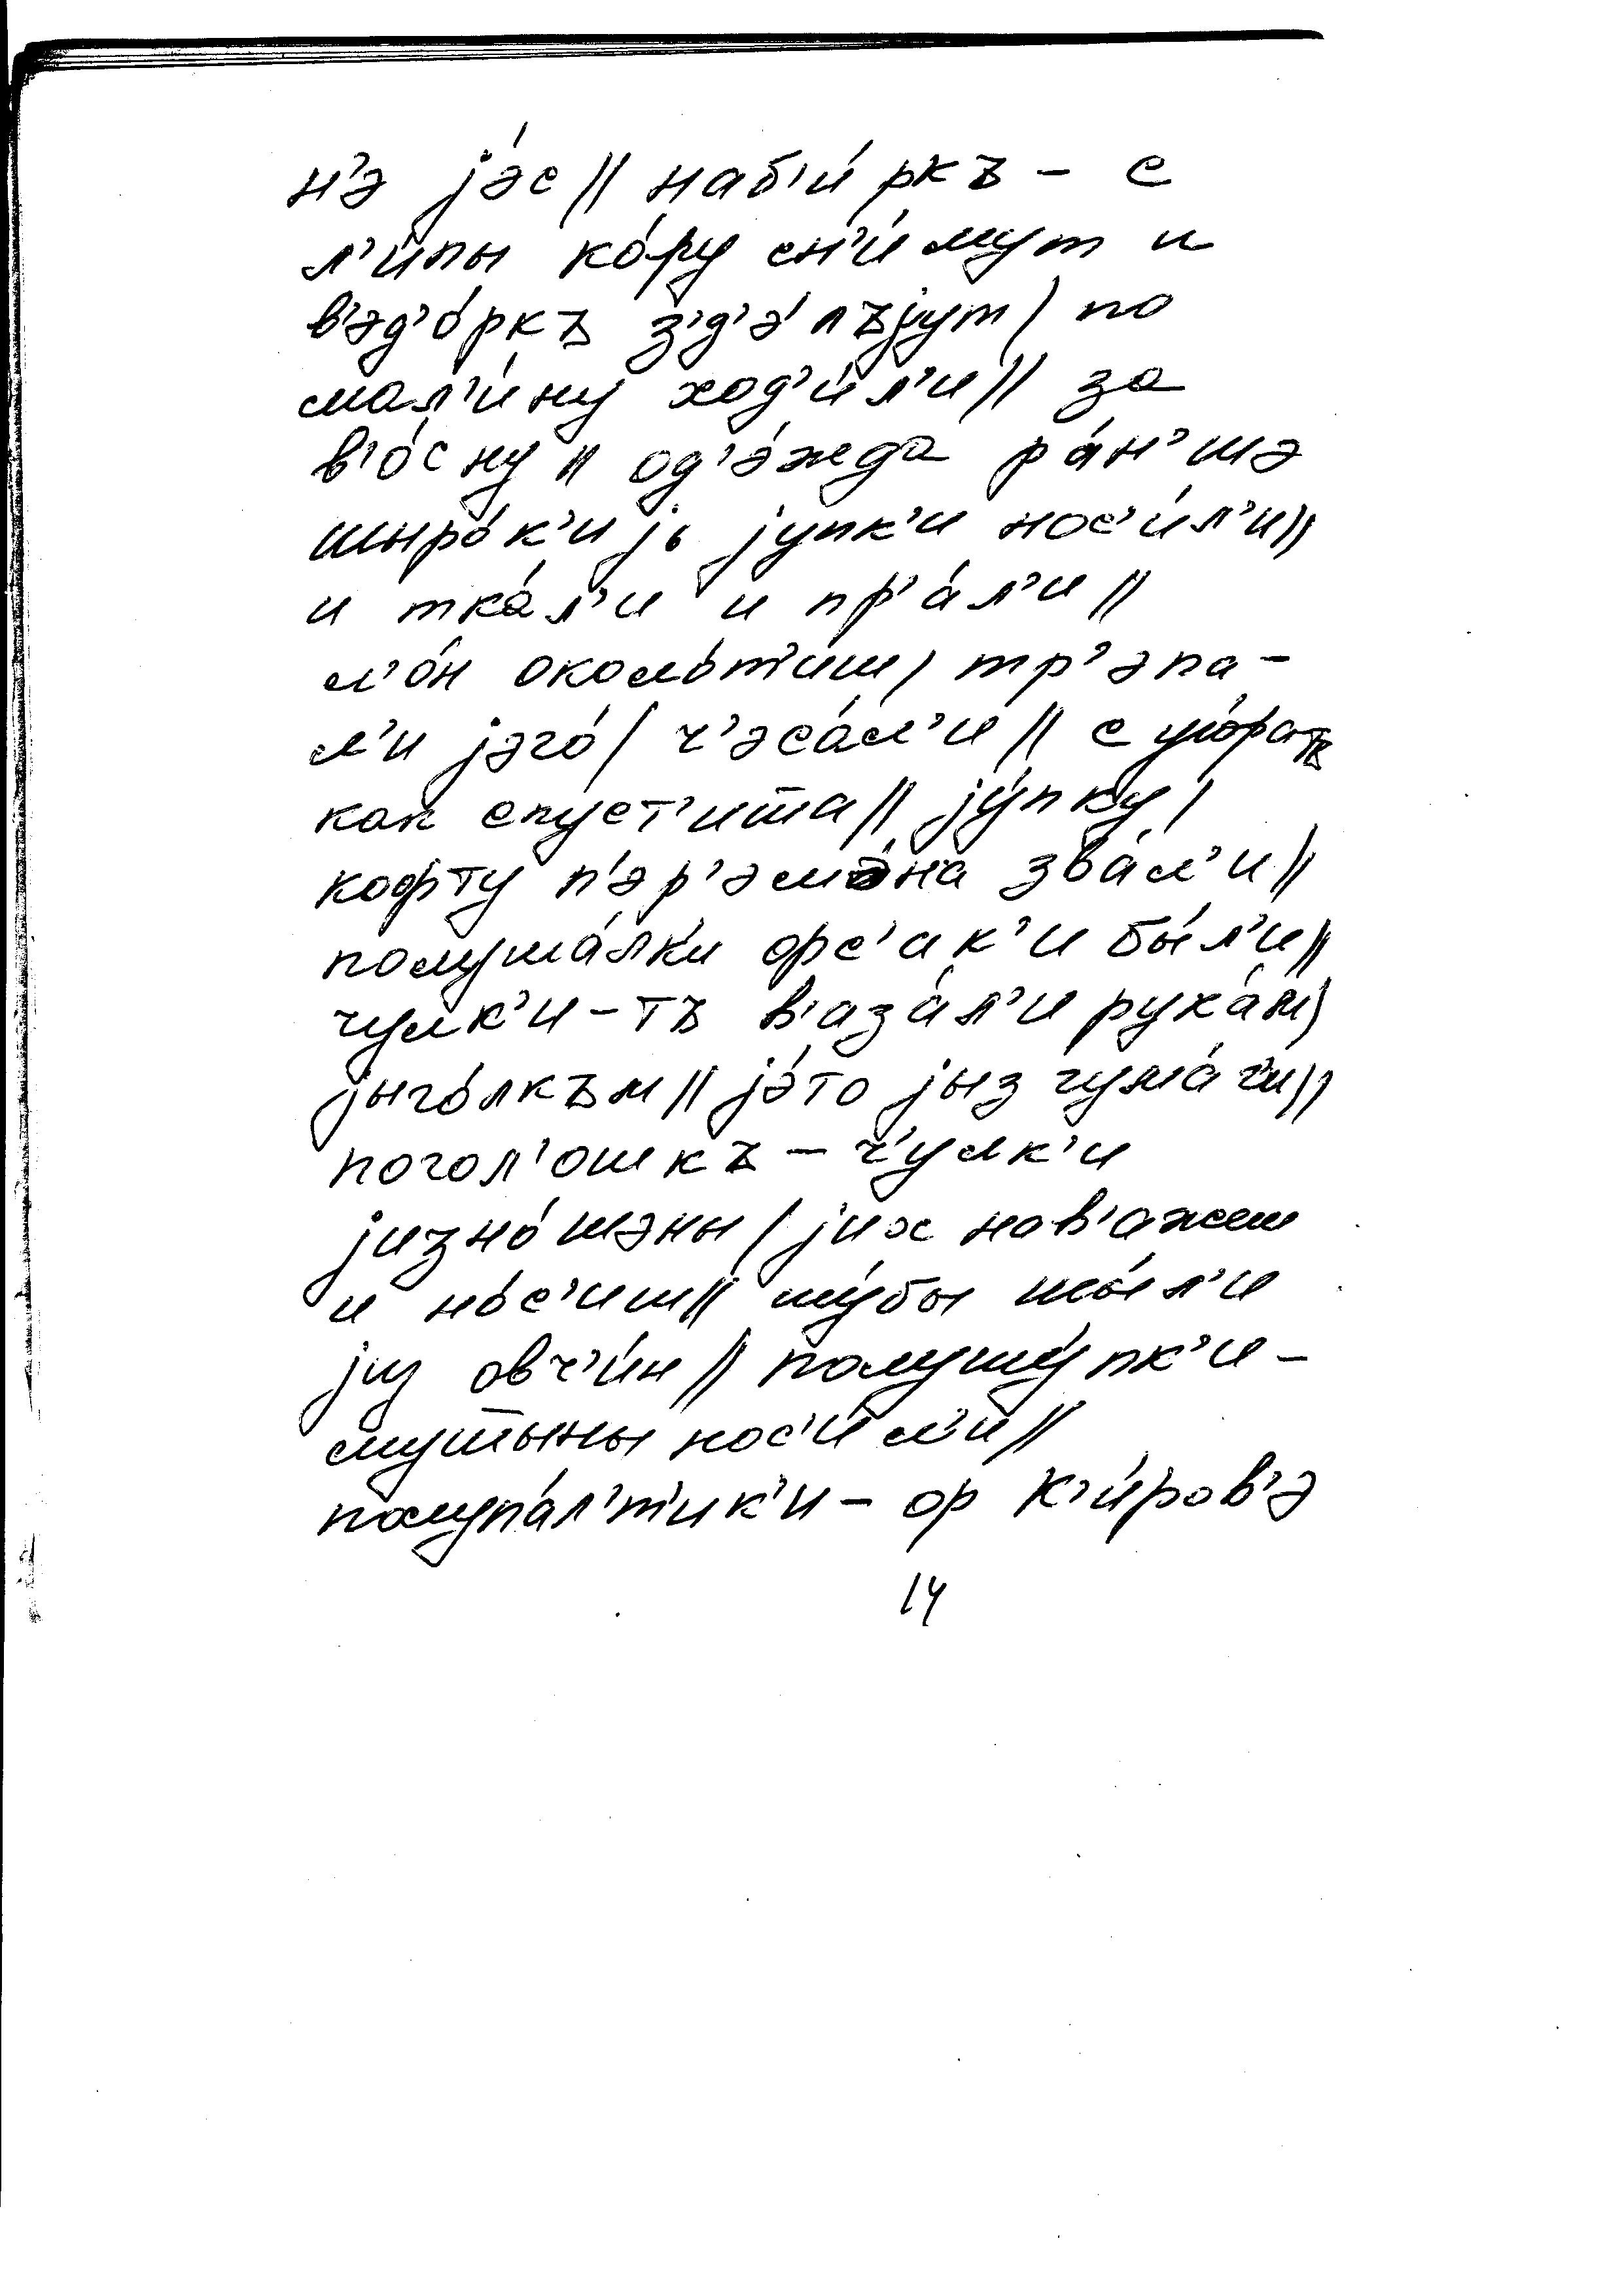 н'э jэ́с || наб'и́ркъ – с
л'и́пы ко́ру сн'и́мут и
в'эд'о́ркъ з'д'э́лъjут / по
мал'и́ну ход'и́л'и || за
в'о́сну || од'э́жда ра́н'шэ
шыро́к'иjь jупк'и нос'и́л'и ||
и тка́л'и и пр'а́л'и ||
л'о́н околот'иш / тр'эпа-
л'и jэго́ / ч'эса́л'и ||
как спуст'ита || jу́пку /
кофту п'эр'эм'э́на зва́л'и ||
полуша́лки орс'ак'и бы́л'и ||
чулк'и-тъ в'аза́л'и рука́м /
jыго́лкъм || jэ́то jыз
погол'ошкъ – ч'улк'и
jизно́шэны / jих нав'ажеш
и но́с'иш || шу́бы шы́л'и
jиз овч'и́н || полушу́пк'и –
нос'и́л'и ||
полупа́л'т'ик'и – ор К'и́ров'э
14